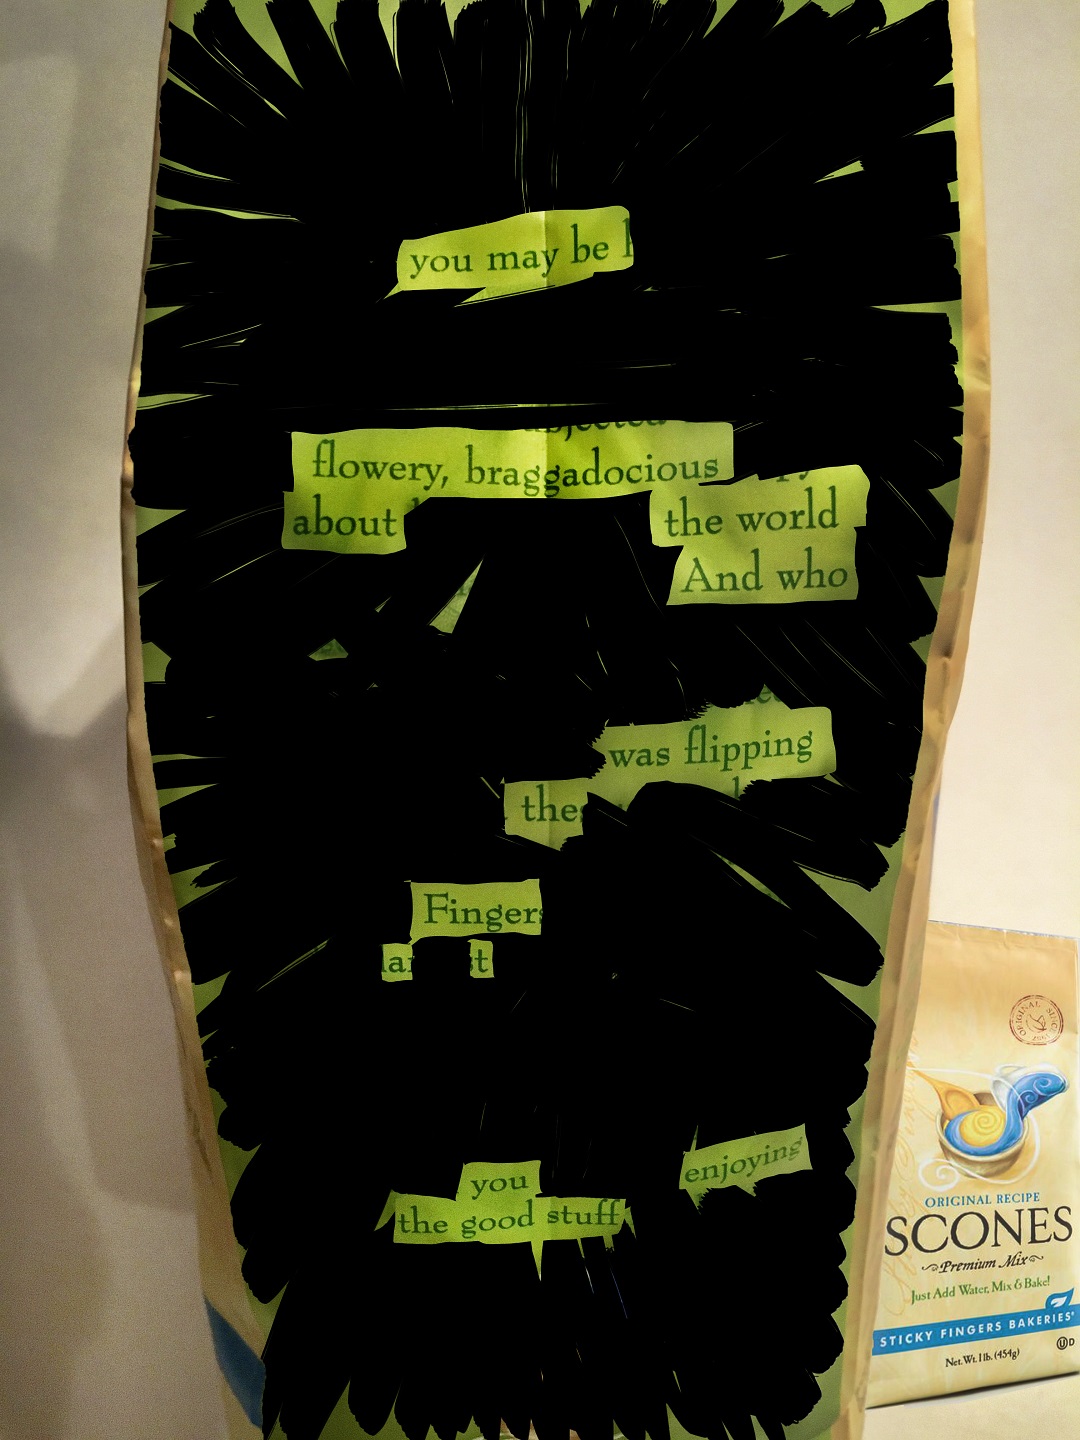 you may be
flowery, braggadocious
about
the world
And who
was flipping
the
Fingers
you
enjoying
the good stuff
ORIGINAL RECIPE
SCONES
Premium Mix
Just Add Water, Mix & Bake!
STICKY FINGERS BAKERIES
Net. Wt. 1 lb. (454g)